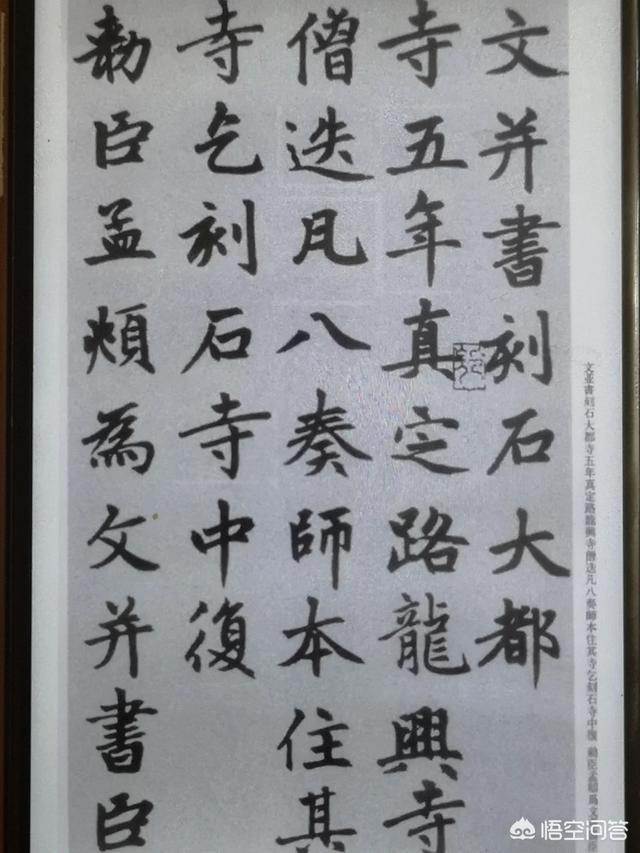 文并書刻石大都
寺五年真定路龍興寺
僧迭凡八奏師本住其
寺乞刻石寺中復
勑臣孟頫為文并書臣
文並書刻石大都寺五年真定路龍興寺僧迭凡八奏師本住其寺乞刻石寺中復 勑臣孟頫為文
悟空问答